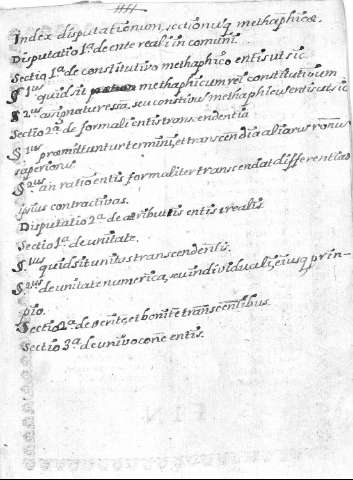 Index disputationum, sectionũq methaphicæ.
Disputatio 1ª de ente reali in comuni.
Sectio 1ª de constitutivo methaphico entis ut sic.
§ 1us quid sit methaphicum rei constitutivum
§ 2us assignatur essã, seu constivũ methaphicũ entis ut sic
Sectio 2ª de formali entis transcendentia
§ 1us præmittuntur termini, et transcendia aliarũ rõnũs
superioris
§ 2us an ratio entis formaliter transcendat differentias
ipsius contractivas.
Disputatio 2ª de atributis entis realis
Sectio 1ª de unitate.
§ 1us quid sit unitas transcendẽlis.
§ 2us de unitate numerica, seu individuali, eiusq prin-
pio.
Sectio 2ª de verite, et bonite transcentibus.
Sectio 3ª de univocõne entis.